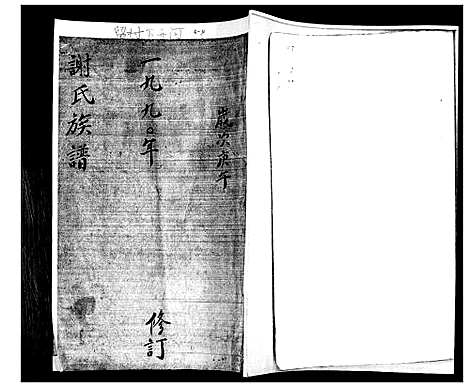 歲次庚午
一九九〇年
修訂
謝氏族譜